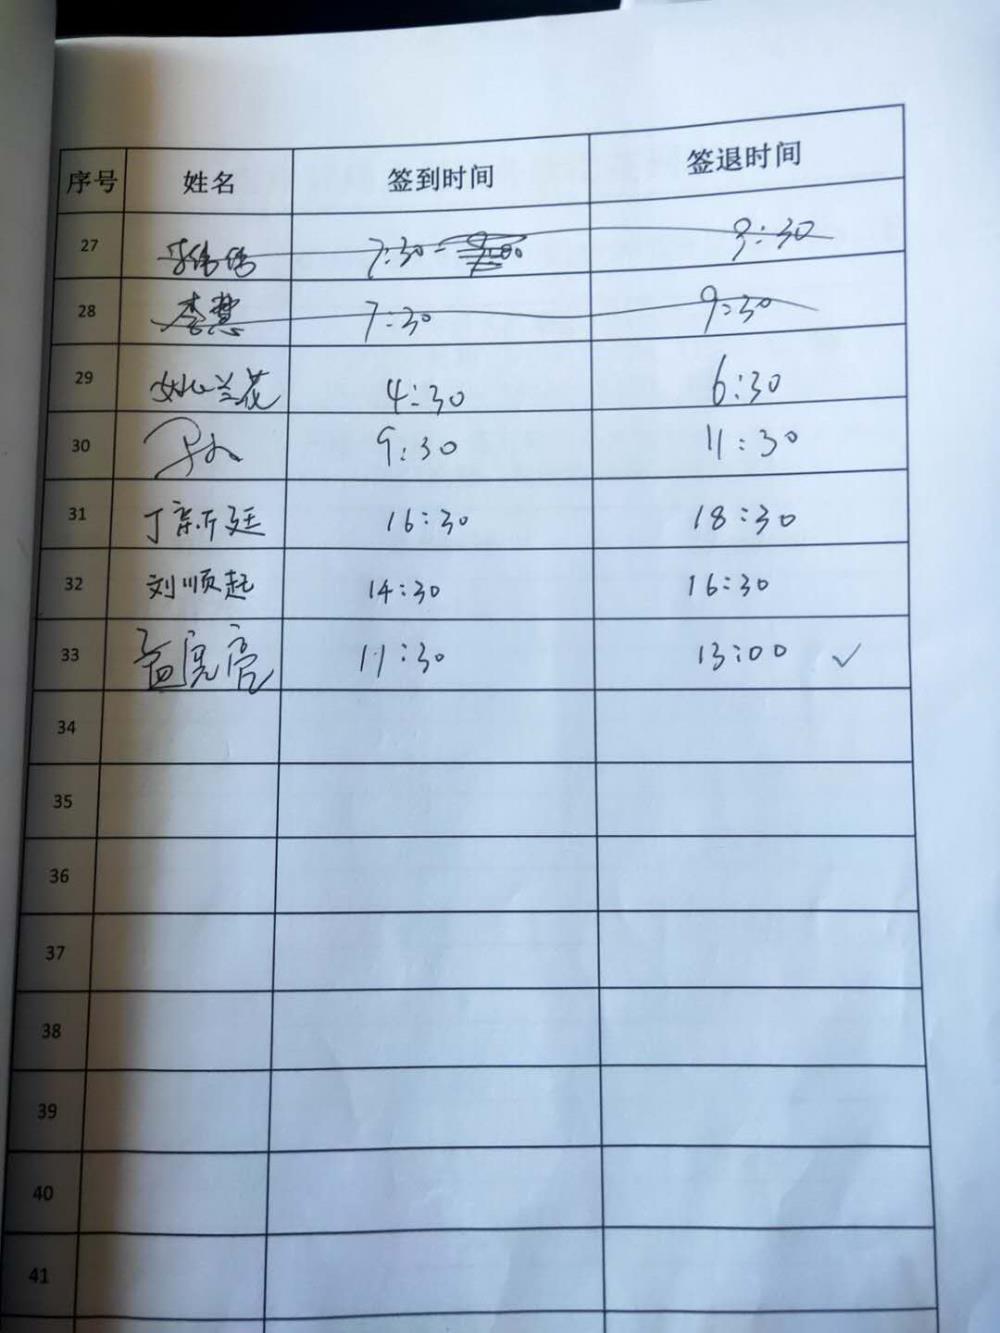 序号 姓名 签到时间 签退时间
27 7:30- 9:30
28 李慧 7:30 9:30
29 姚兰花 4:30 6:30
30 9:30 11:30
31 丁新廷 16:30 18:30
32 刘顺起 14:30 16:30
33 亮 11:30 13:00 ✓
34
35
36
37
38
39
40
41